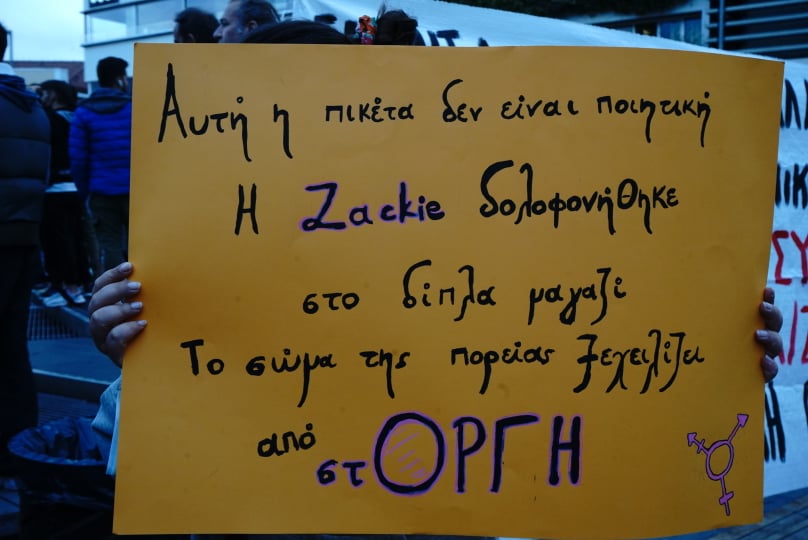 Αυτή η πικέτα δεν είναι ποιητική
Η Zackie δολοφονήθηκε
στο δίπλα μαγαζί
Το σώμα της πορείας ξεχειλίζει
από
στΟΡΓΗ